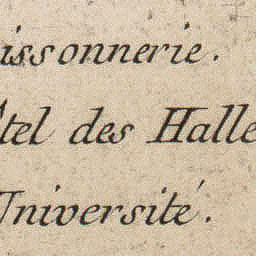 issonnerie.
tel des Halle
Université.